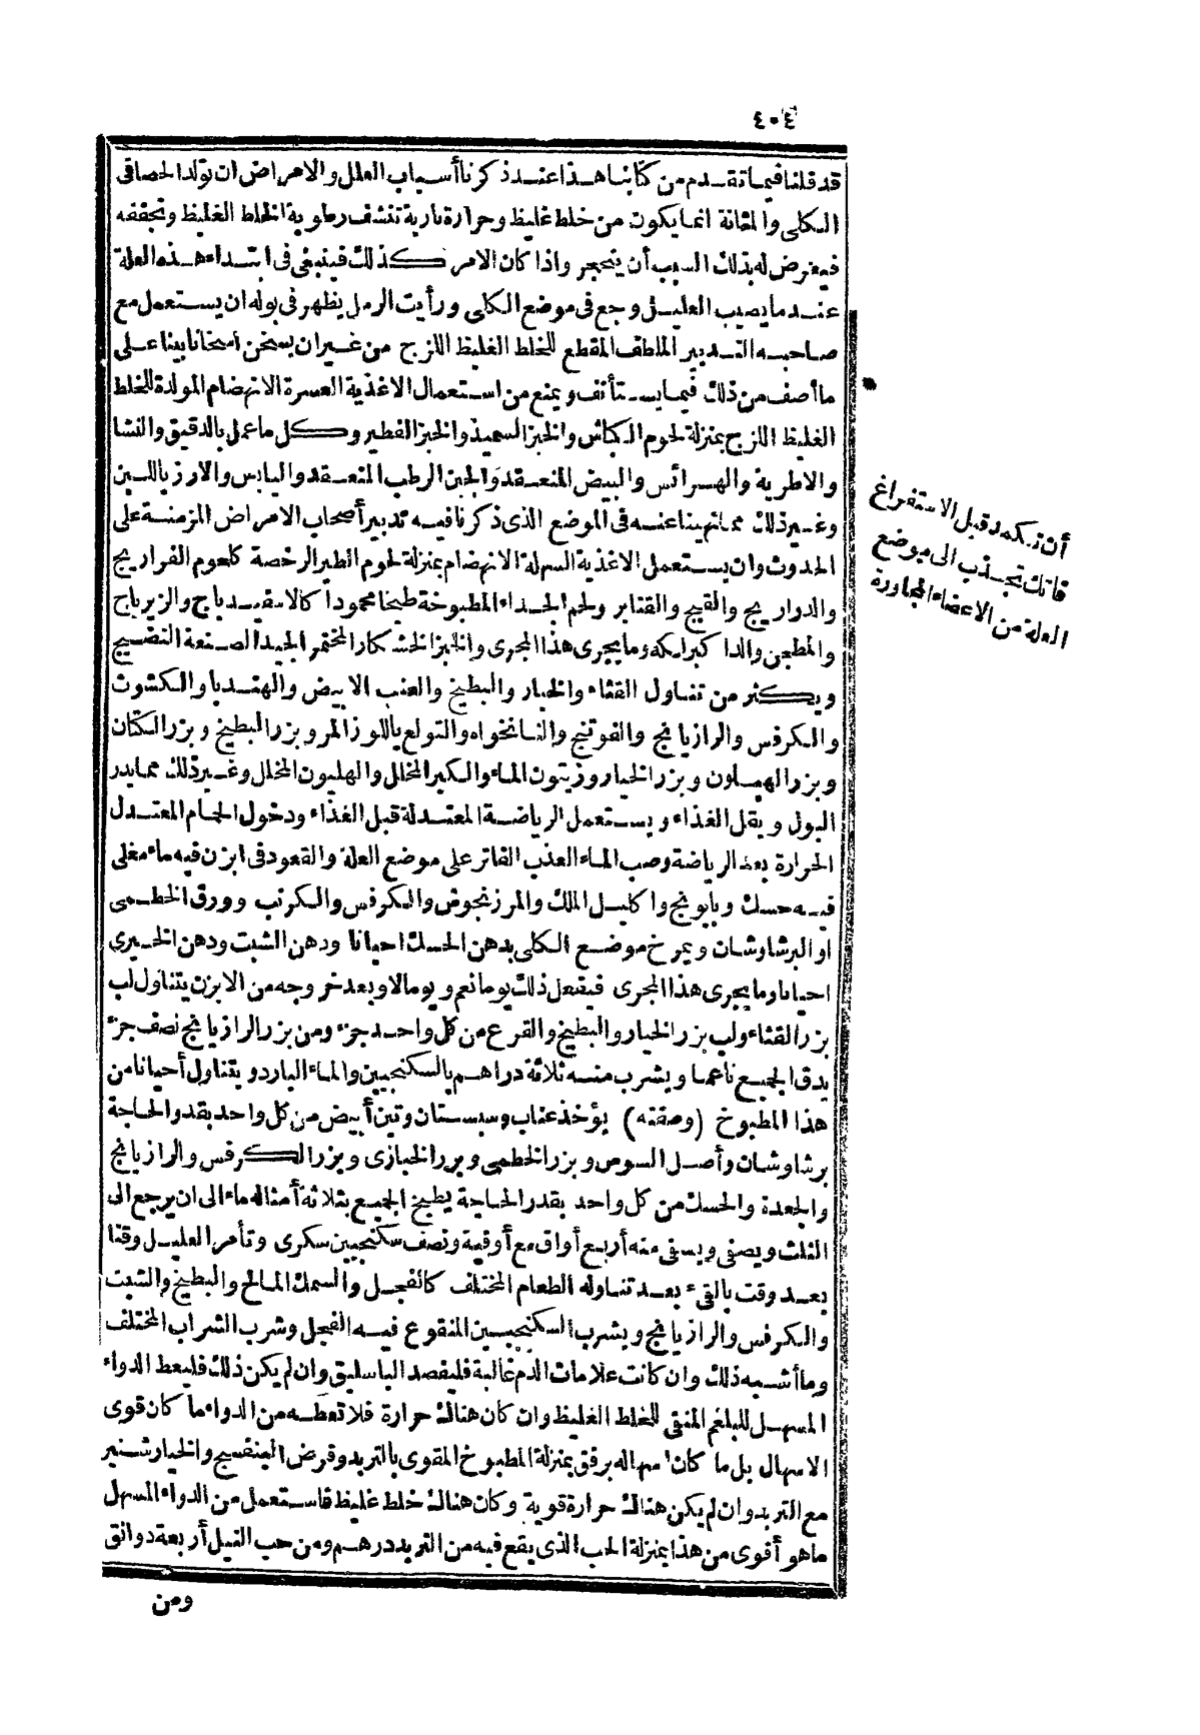 ٤٠٤
قد قلنا فيما تقدم من كتابنا هذا عند ذكرنا أسباب العلل والامراض ان تولد الحصا فى
الكلى والمثانة انما يكون من خلط غليظ وحرارة نارية تنشف رطوبة الخلط الغليظ وتجففه
فيعرض له بذلك السبب أن يتحجر واذا كان الامر كذلك فينبغى فى ابتداء هذه العلة
عند ما يصيب العليل وجع فى موضع الكلى ورأيت الرمل يظهر فى بوله ان يستعمل مع
صاحبه التدبير الملطف المقطع للخلط الغليظ اللزج من غير ان يسخن اسخانا بينا على
ما أصف من ذلك فيما يستأنف ويمنع من استعمال الاغذية العسرة الانهضام المولدة للخلط
الغليظ اللزج بمنزلة لحوم الكباش والخبز السميذ والخبز الفطير وكل ما عمل بالدقيق والنشا
والاطرية والهرائس والبيض المنعقد والجبن الرطب المنعقد واليابس والارز باللبن
وغير ذلك مما نهينا عنه فى الموضع الذى ذكرنا فيه تدبير أصحاب الامراض المزمنة على
الحدوث وان يستعمل الاغذية السهلة الانهضام بمنزلة لحوم الطير الرخصة كلحوم الفراريج
والدواريج والقبج والقنابر ولحم الجداء المطبوخة طبخا محمودا كالاسفيدباج والزيرباج
والمطجن والدا كبرايكه وما يجرى هذا المجرى والخبز الخشكار المختمر الجيد الصنعة النضيج
ويكثر من تناول القثاء والخيار والبطيخ والعنب الابيض والهنديا والكشوث
والكرفس والرازيانج والفوتنج والنانخواه والتولع باللوز المر وبزر البطيخ وبزر الكتان
وبزر الهيلون وبزر الخيار وزيتون الماء والكبر المخلل والهليون المخلل وغير ذلك مما يدر
البول ويقل الغذاء ويستعمل الرياضة المعتدلة قبل الغذاء ودخول الحمام المعتدل
الحرارة بعد الرياضة وصب الماء العذب الفاتر على موضع العلة والقعود فى ابزن فيه ماء مغلى
فيه حسك وبابونج واكليل الملك والمرزنجوش والكرفس والكرنب وورق الخطمى
او البرشاوشان ويمرخ موضع الكلى بدهن الحسك احيانا ودهن الشبت ودهن الخيرى
احيانا وما يجرى هذا المجرى فيفعل ذلك يوما نعم ويوما لا وبعد خروجه من الابزن يتناول لب
بزر القثاء ولب بزر الخيار والبطيخ والقرع من كل واحد جزء ومن بزر الرازيانج نصف جزء
يدق الجميع ناعما ويشرب منه ثلاثة دراهم بالسكنجبين والماء البارد ويتناول أحيانا من
هذا المطبوخ (وصفته) يؤخذ عناب وسبستان وتين أبيض من كل واحد بقدر الحاجة
برشاوشان وأصل السوس وبزر الخطمى وبزر الخبازى وبزر الكرفس والرازيانج
والجعدة والحسك من كل واحد بقدر الحاجة يطبخ الجميع بثلاثة أمثاله ماء الى ان يرجع الى
الثلث ويصفى ويسقى منه أربع أواق مع أوقية ونصف سكنجبين سكرى وتأمر العليل وقتا
بعد وقت بالقىء بعد تناوله الطعام المختلف كالفجل والسمك المالح والبطيخ والشبت
والكرفس والرازيانج ويشرب السكنجبين المنقوع فيه الفجل وشرب الشراب المختلف
وما أشبه ذلك وان كانت علامات الدم غالبة فليفصد الباسليق وان لم يكن ذلك فليعط الدواء
المسهل للبلغم المنقى للخلط الغليظ وان كان هناك حرارة فلا تعطه من الدواء ما كان قوى
الاسهال بل ما كان اسهاله برفق بمنزلة المطبوخ المقوى بالتربد وقرض البنفسج والخيارشنبر
مع التربد وان لم يكن هناك حرارة قوية وكان هناك خلط غليظ فاستعمل من الدواء المسهل
ما هو أقوى من هذا بمنزلة الحب الذى يقع فيه من التربد درهم ومن حب النيل أربعة دوانق
ومن
أن تكمد قبل الاستفراغ
فانك تجذب الى موضع
العلة من الاعضاء المجاورة